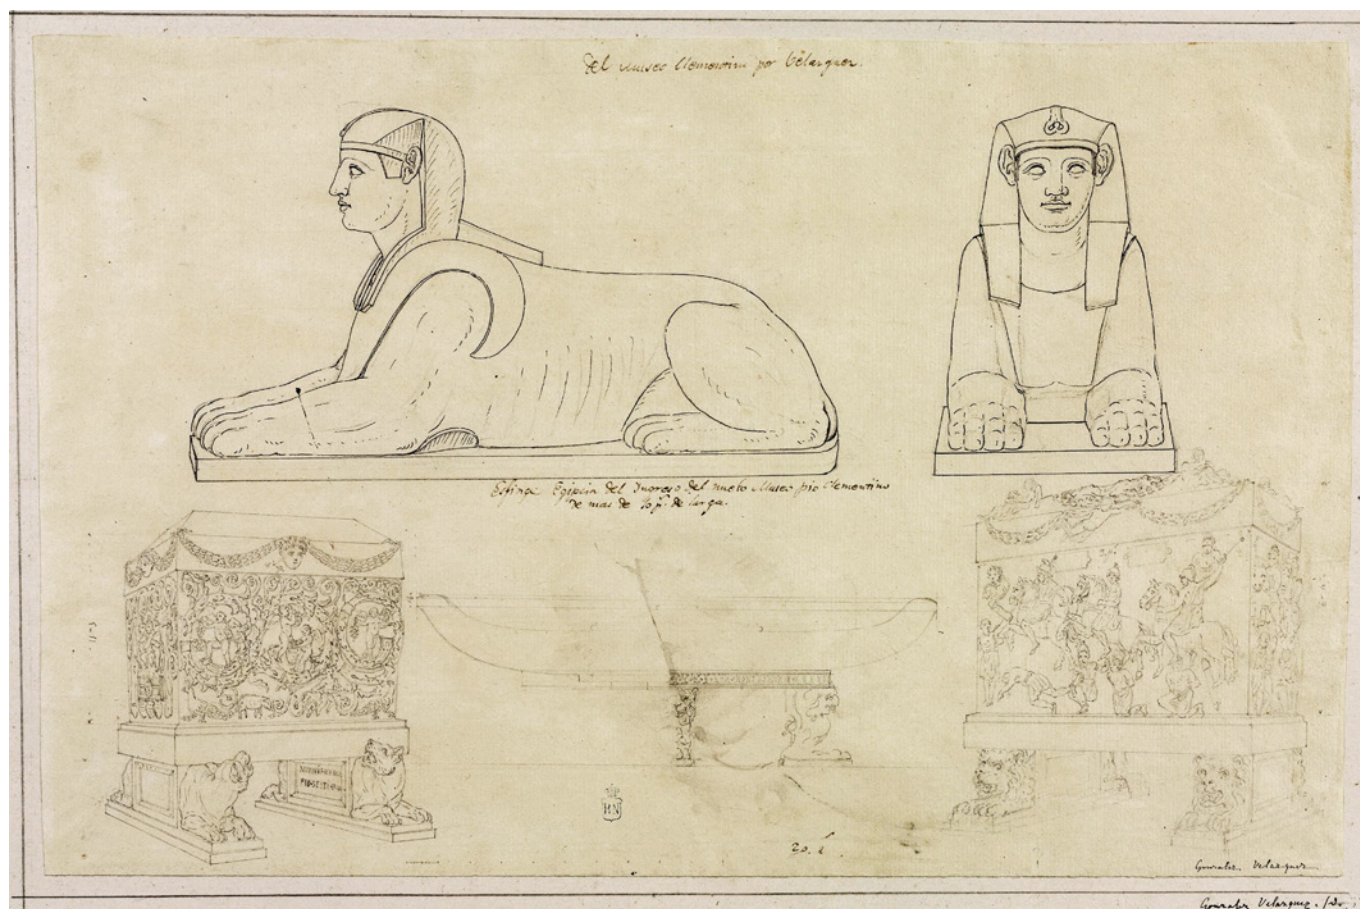 del museo Clementino por Velazquez.
Esfinge Egipcia del Ingreso del nuebo Museo pio Clementino
de mas de 10 p.s de larga.
HN
20. 
Gonzalez Velazquez
Gonzalez Velazquez.